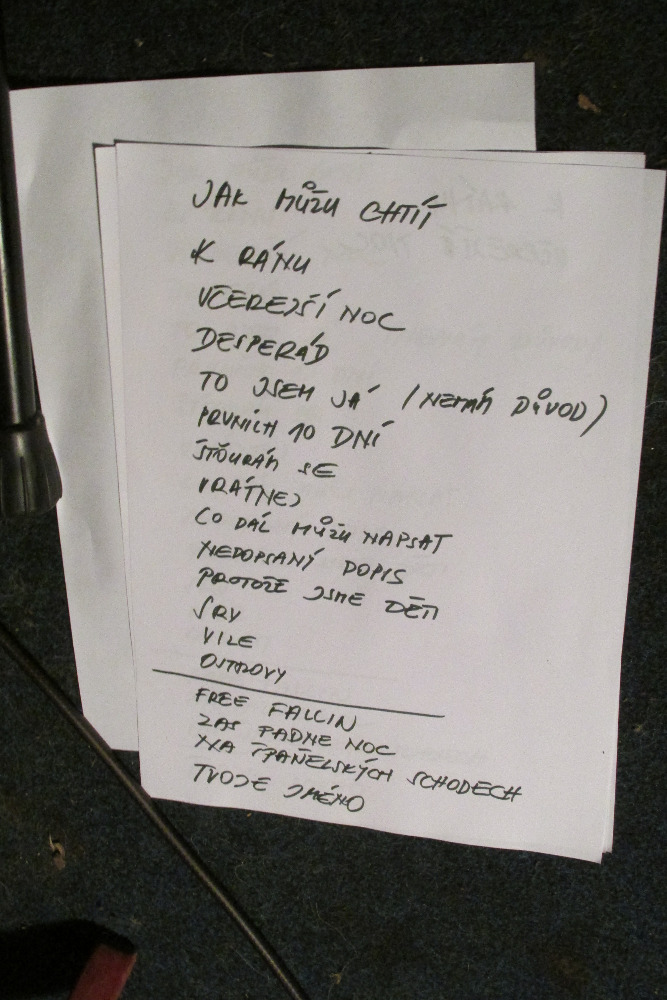 JAK MŮŽU CHTÍT
K RÁNU
VČEREJŠÍ NOC
DESPERÁD
TO JSEM JÁ (NEMÁM DŮVOD)
PRVNÍCH 10 DNÍ
ŠŤOURÁM SE
VRÁTNEJ
CO DÁL MŮŽU NAPSAT
NEDOPSANÝ DOPIS
PROTOŽE JSME DĚTI
SRV
VILE
OSTROVY
FREE FALLIN
ZAS PADNE NOC
NA ŠPANĚLSKÝCH SCHODECH
TVOJE JMÉNO